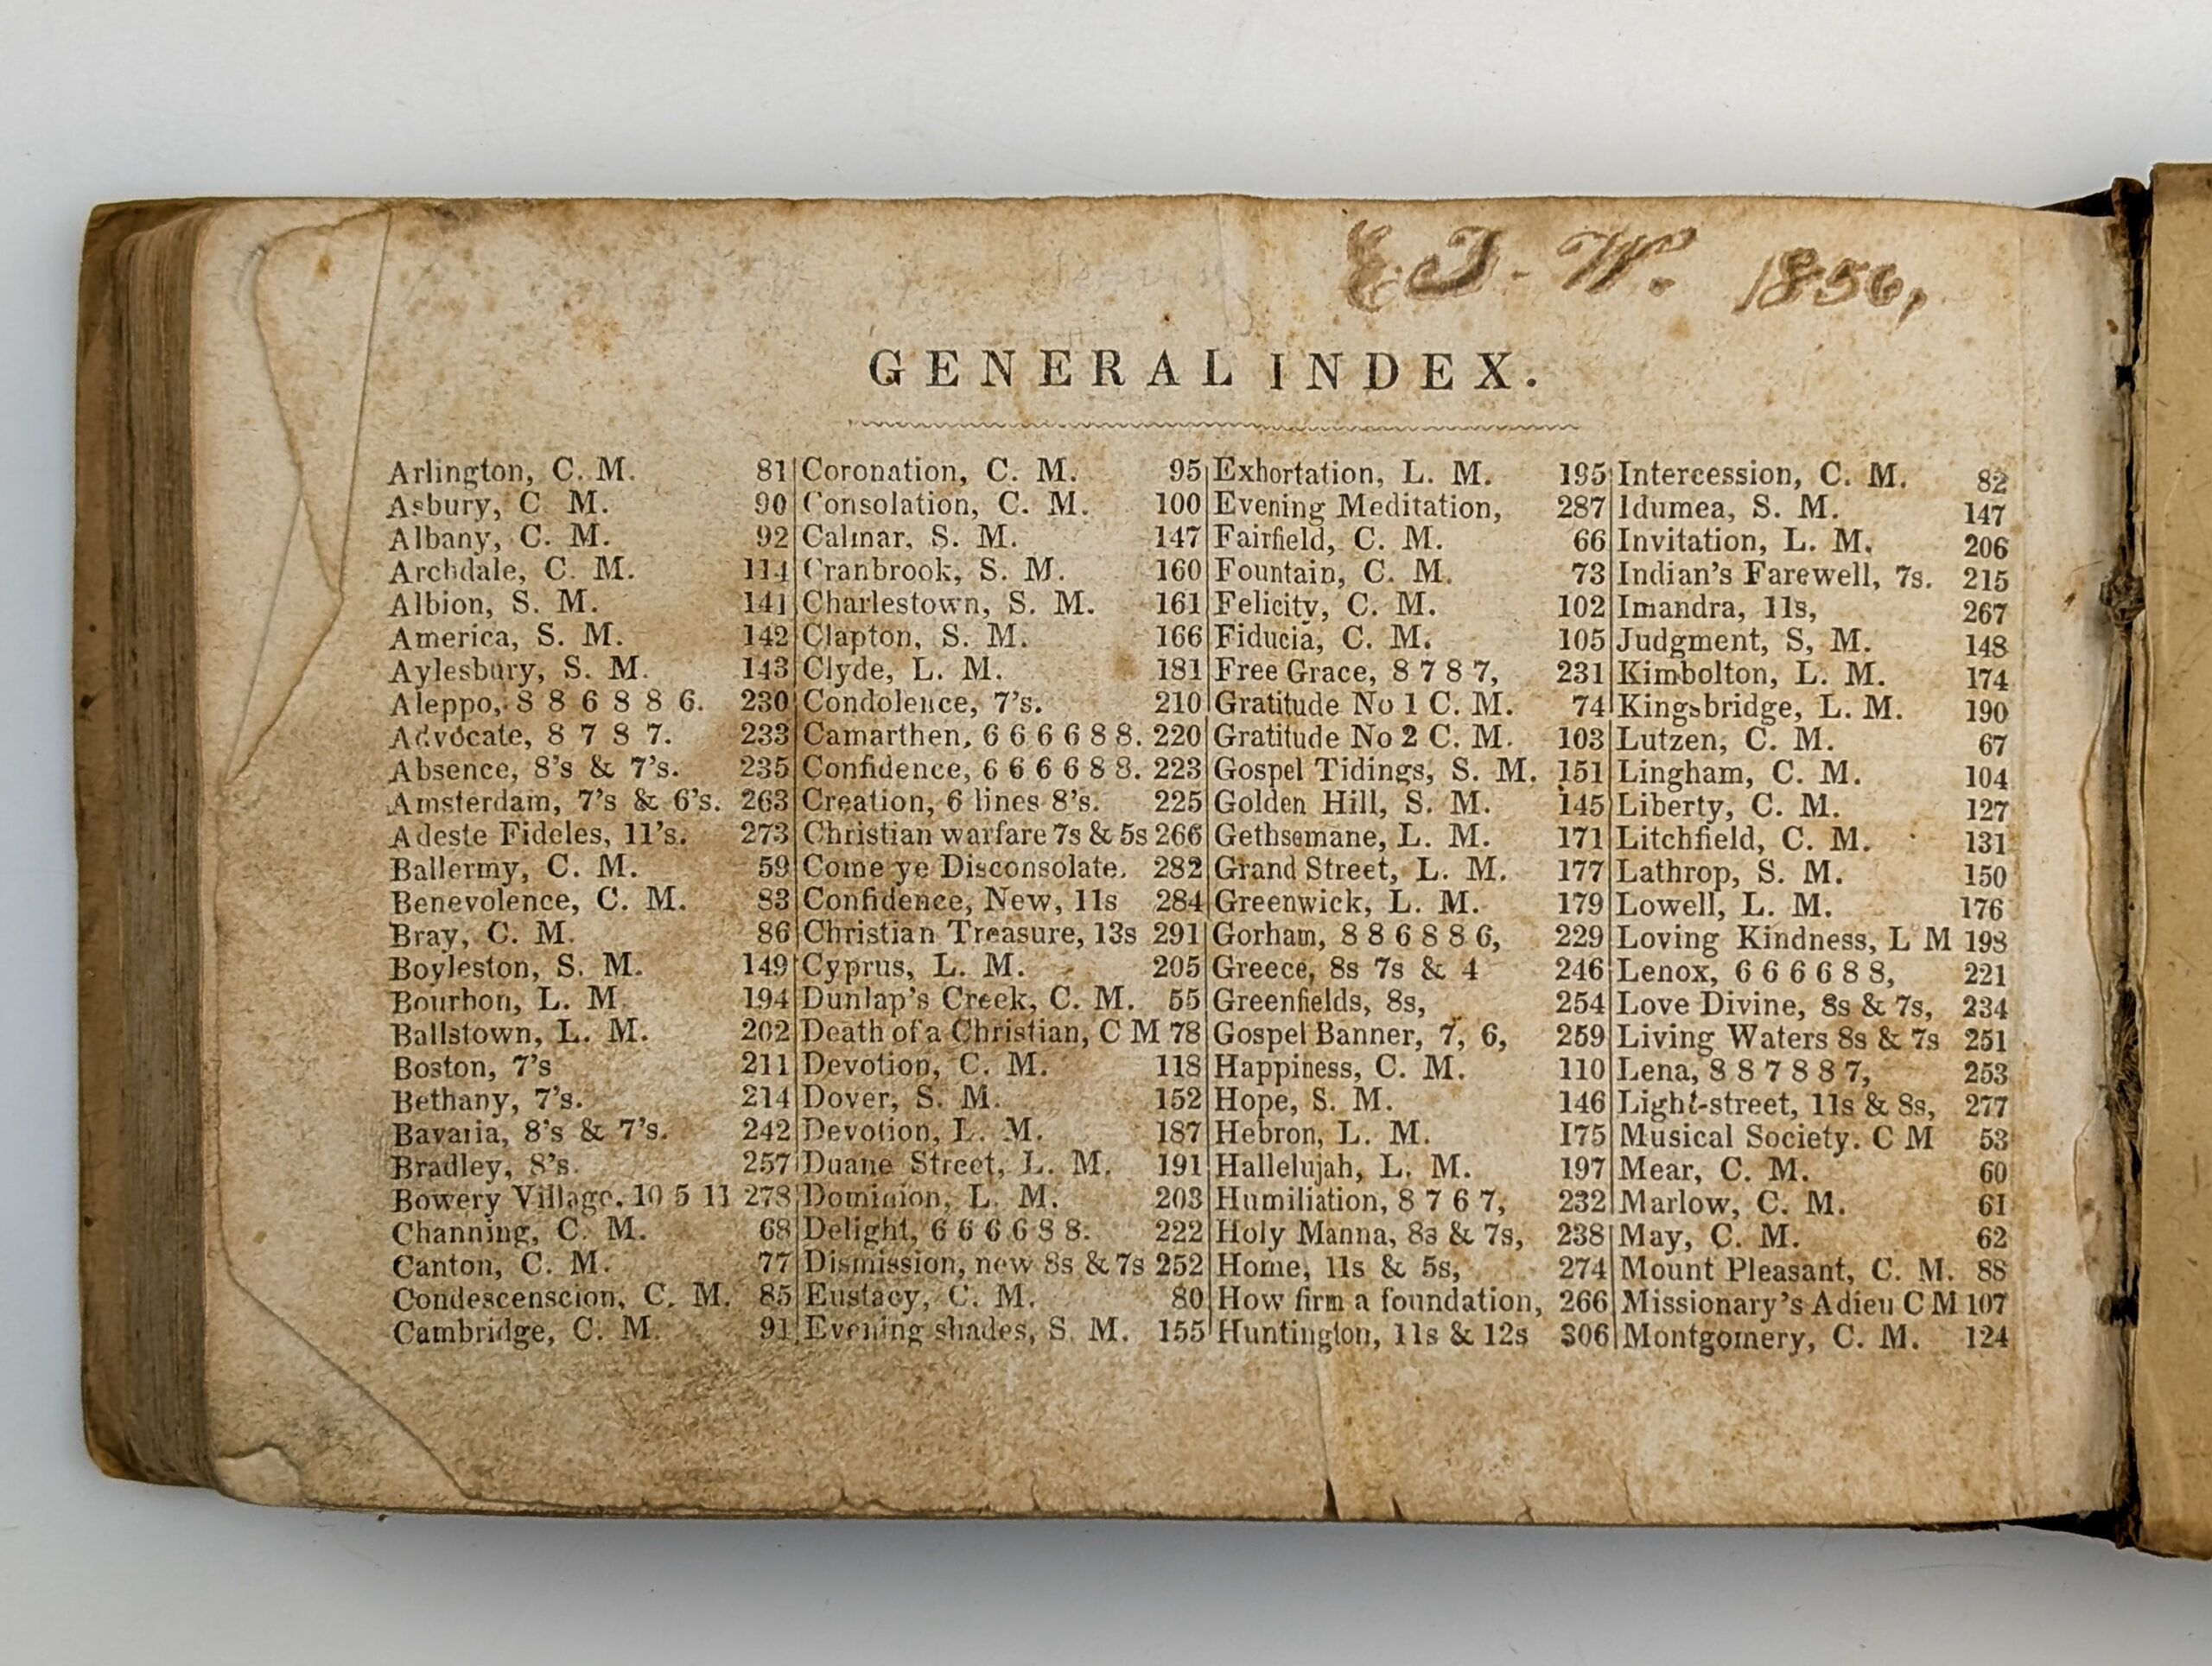 E. J. W. 1856,
GENERAL INDEX.
Arlington, C. M. 81
Asbury, C M. 90
Albany, C. M. 92
Archdale, C. M. 114
Albion, S. M. 141
America, S. M. 142
Aylesbury, S. M. 143
Aleppo, 8 8 6 8 8 6. 230
Advocate, 8 7 8 7. 233
Absence, 8's & 7's. 235
Amsterdam, 7's & 6's. 263
Adeste Fideles, 11's. 273
Ballermy, C. M. 59
Benevolence, C. M. 83
Bray, C. M. 86
Boyleston, S. M. 149
Bourbon, L. M 194
Ballstown, L. M. 202
Boston, 7's 211
Bethany, 7's. 214
Bavaria, 8's & 7's. 242
Bradley, 8's. 257
Bowery Village, 10 5 11 278
Channing, C. M. 68
Canton, C. M. 77
Condescenscion, C. M. 85
Cambridge, C. M. 91
Coronation, C. M. 95
Consolation, C. M. 100
Calmar, S. M. 147
Cranbrook, S. M. 160
Charlestown, S. M. 161
Clapton, S. M. 166
Clyde, L. M. 181
Condolence, 7's. 210
Camarthen, 6 6 6 6 8 8. 220
Confidence, 6 6 6 6 8 8. 223
Creation, 6 lines 8's. 225
Christian warfare 7s & 5s 266
Come ye Disconsolate. 282
Confidence, New, 11s 284
Christian Treasure, 13s 291
Cyprus, L. M. 205
Dunlap's Creek, C. M. 55
Death of a Christian, C M 78
Devotion, C. M. 118
Dover, S. M. 152
Devotion, L. M. 187
Duane Street, L. M. 191
Dominion, L. M. 203
Delight, 6 6 6 6 8 8. 222
Dismission, new 8s & 7s 252
Eustacy, C. M. 80
Evening shades, S M. 155
Exhortation, L. M. 195
Evening Meditation, 287
Fairfield, C. M. 66
Fountain, C. M. 73
Felicity, C. M. 102
Fiducia, C. M. 105
Free Grace, 8 7 8 7, 231
Gratitude No 1 C. M. 74
Gratitude No 2 C. M. 103
Gospel Tidings, S. M. 151
Golden Hill, S. M. 145
Gethsemane, L. M. 171
Grand Street, L. M. 177
Greenwick, L. M. 179
Gorham, 8 8 6 8 8 6, 229
Greece, 8s 7s & 4 246
Greenfields, 8s, 254
Gospel Banner, 7, 6, 259
Happiness, C. M. 110
Hope, S. M. 146
Hebron, L. M. 175
Hallelujah, L. M. 197
Humiliation, 8 7 6 7, 232
Holy Manna, 8s & 7s, 238
Home, 11s & 5s, 274
How firm a foundation, 266
Huntington, 11s & 12s 306
Intercession, C. M. 82
Idumea, S. M. 147
Invitation, L. M. 206
Indian's Farewell, 7s. 215
Imandra, 11s, 267
Judgment, S, M. 148
Kimbolton, L. M. 174
Kingsbridge, L. M. 190
Lutzen, C. M. 67
Lingham, C. M. 104
Liberty, C. M. 127
Litchfield, C. M. 131
Lathrop, S. M. 150
Lowell, L. M. 176
Loving Kindness, L M 198
Lenox, 6 6 6 6 8 8, 221
Love Divine, 8s & 7s, 234
Living Waters 8s & 7s 251
Lena, 8 8 7 8 8 7, 253
Light-street, 11s & 8s, 277
Musical Society. C M 53
Mear, C. M. 60
Marlow, C. M. 61
May, C. M. 62
Mount Pleasant, C. M. 88
Missionary's Adieu C M 107
Montgomery, C. M. 124